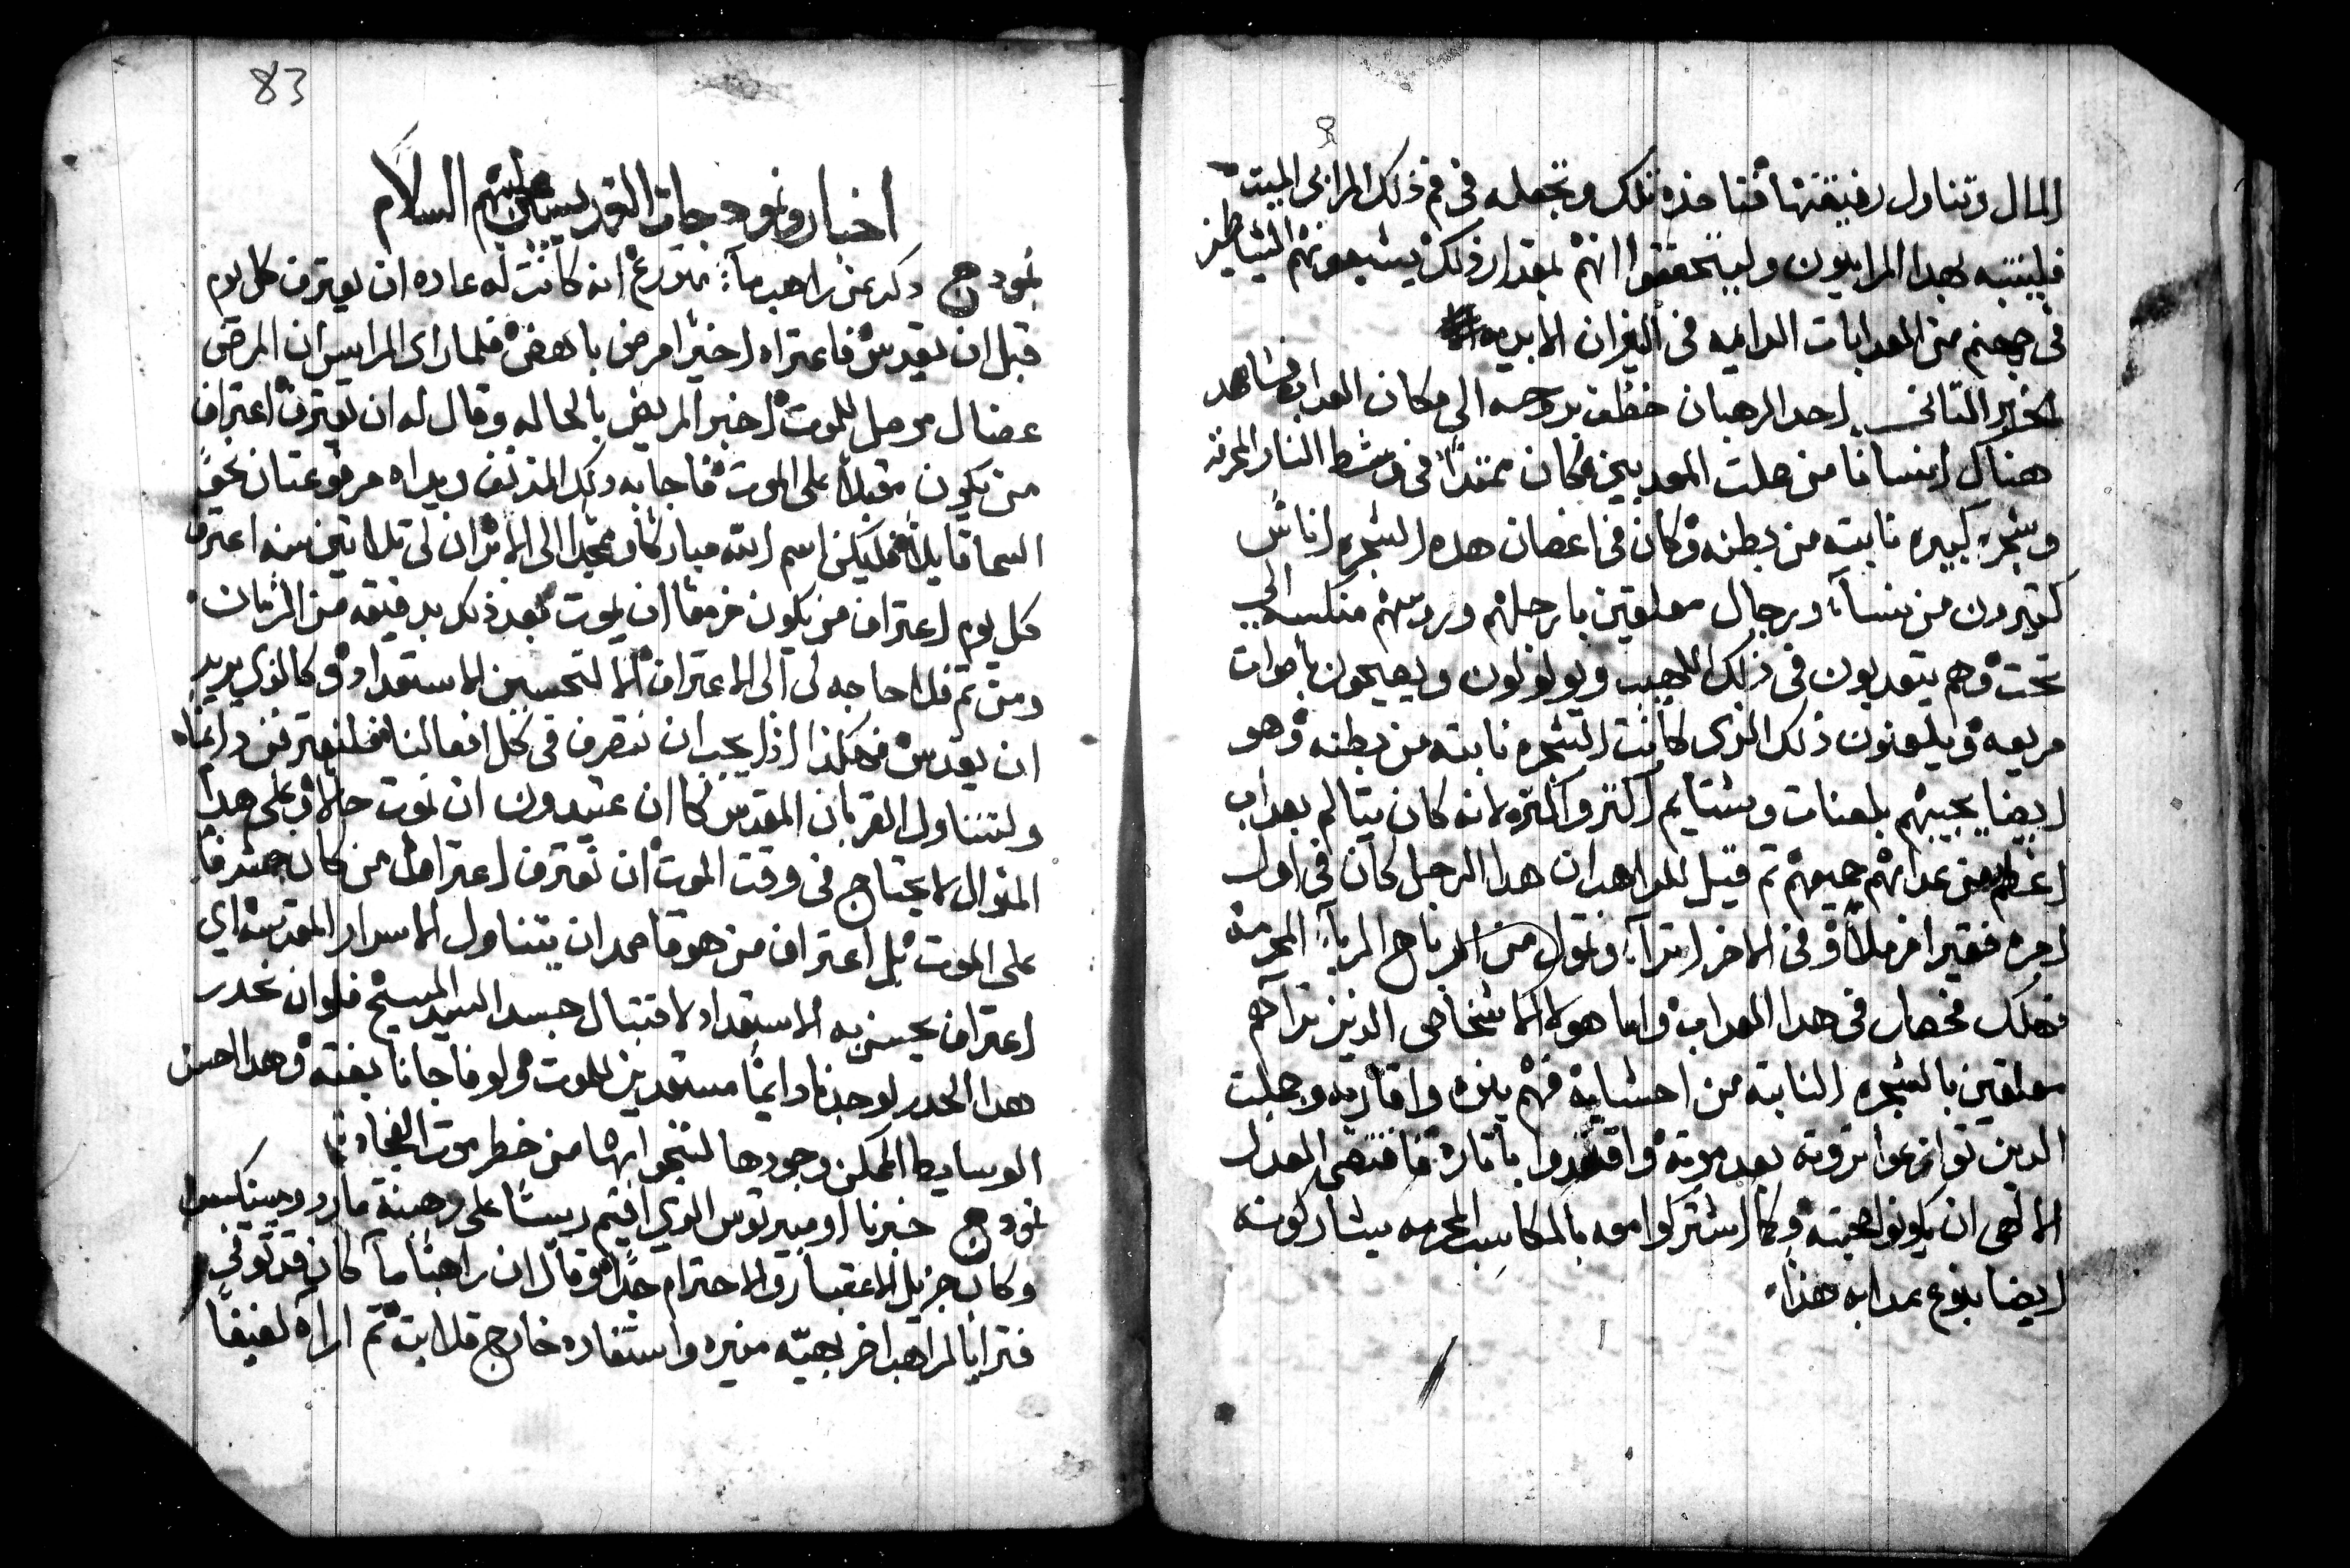 المال وتناول رفيقتها فتاخذه تلك وتجعله في فم ذلك المرابى الميت
فلينتبه بهدا المرابيون وليتحققوا انهم بمقدار ذلك يشبعونهم الشياطين
في جهنم من العدابات الدايمه في النيران الابديه
الخبر التاني احد الرهبان خطف بروحه الى مكان العداب فشاهد
هناك انسانا من جملت المعدبين فكان ممتدًا في وسط النار المحرقه
وشجره كبيره نابته من بطنه وكان في اغصان هده الشجره اناس
كتيرون من نسآء ورجال معلقين بارجلهم ورووسهم منكسه الى
تحت وهم يتعدبون في ذلك اللهيب ويولولون ويصيحون باصوات
مريعه ويلعنون ذلك الذى كانت الشجره نابته من بطنه وهو
ايضا يجيبهم بلعنات وشتايم اكتر واكتر لانه كان يتالم بعداب
اعظم من عدابهم جميعهم تم قيل للراهب ان هدا الرجل كان في اول
امره فقيرا ارملاً وفي الاخر اترآ وتمول من ارباح الربآ المحرمه
فهلك فحصل في هدا العداب واما هولا الاشخاص الدين تراهم
معلقين بالشجره النابته من احشايه فهم بنوه واقاربه وجملت
الدين توازعوا تروته بعد موته واقتدوا باتاره فاقتضى العدل
الالهى ان يكونوا بجهنم وكما اشتركوا معه بالمكاسب المحرمه يشاركونه
ايضا بنوع عدابه هذا
83
اخبار ونمودجات القديسين عليهم السلام
نمودج دكر عن راهب مآ متورع انه كانت له عاده ان يعترف كل يوم
قبل ان يقدس فاعتراه اخيرا مرض باهض فلما راى الرايس ان المرض
عضال موصل للموت اخبر المريض بالحاله وقال له ان يعترف اعتراف
من يكون مقبلاً على الموت فاجابه دلك المدنف ويداه مرفوعتان نحو
السما قايلاً فليكن اسم الله مباركا وممجدا الى الابد ان لي تلاتين سنه اعترف
كل يوم اعتراف من يكون مزمعا ان يموت بعد ذلك بدقيقه من الزمان
ومن تم فلا حاجه لي الى الاعتراف الا لتحسين الاستعداد وكالذي يريد
ان يقدس فهكذا اذا يجب ان نتصرف في كل افعالنا فلنعترفن دايما
ولنتناول القربان المقدس كما ان عتيدون ان نموت حالاً وعلى هدا
المنوال لا يحتاج في وقت الموت ان نعترف اعتراف من كان مشرفًا
على الموت بل اعتراف من هو قاصد ان يتناول الاسرار المقدسه اي
اعتراف يحسن به الاستعداد لاقتبال جسد السيد المسيح فلو ان نحدر
هدا الحدر لوجدنا دايما مستعدين للموت ولو فاجانا بغته وهدا احسن
الوسايط الممكن وجودها لننجوا بها من خطر موت الفجاه
نمودج خبرنا اوميرتوس الذي اقيم ريسًا على رهبنة مار دومينيكوس
وكان جزيل الاعتبار والاحترام جدًا وقال ان راهبًا مآ كان قد توفي
فترايا لراهب اخر بهيّه منيره واستقاده خارج قلايته تم اراه لفيفًا